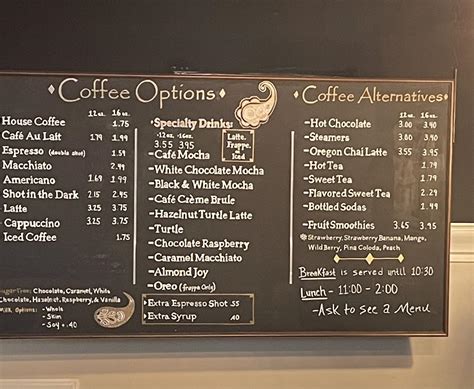 Coffee Options
12 oz. 16 oz.
House Coffee 1.75
Café Au Lait 1.79 1.99
Espresso (double shot) 1.99
Macchiato 2.99
Americano 1.69 1.99
Shot in the Dark 2.15 2.45
Latte 3.25 3.75
Cappuccino 3.25 3.75
Iced Coffee 1.75
Sugar Free: Chocolate, Caramel, White
Chocolate, Hazelnut, Raspberry, & Vanilla
Milk Options: - Whole
- Skim
- Soy + .40
Specialty Drinks:
-12 oz. -16 oz.
3.55 3.95
Latte,
Frappe,
or Iced
-Café Mocha
-White Chocolate Mocha
-Black & White Mocha
-Café Crème Brule
-Hazelnut Turtle Latte
-Turtle
-Chocolate Raspberry
-Caramel Macchiato
-Almond Joy
-Oreo (frappe Only)
-Extra Espresso Shot .55
-Extra Syrup .40
Coffee Alternatives
12 oz. 16 oz.
-Hot Chocolate 3.00 3.40
-Steamers 3.00 3.40
-Oregon Chai Latte 3.55 3.95
-Hot Tea 1.79
-Sweet Tea 1.79
-Flavored Sweet Tea 2.29
-Bottled Sodas 1.99
-Fruit Smoothies 3.45 3.95
Strawberry, Strawberry Banana, Mango,
Wild Berry, Pina Colada, Peach
Breakfast is served until 10:30
Lunch - 11:00 - 2:00
-Ask to See a Menu